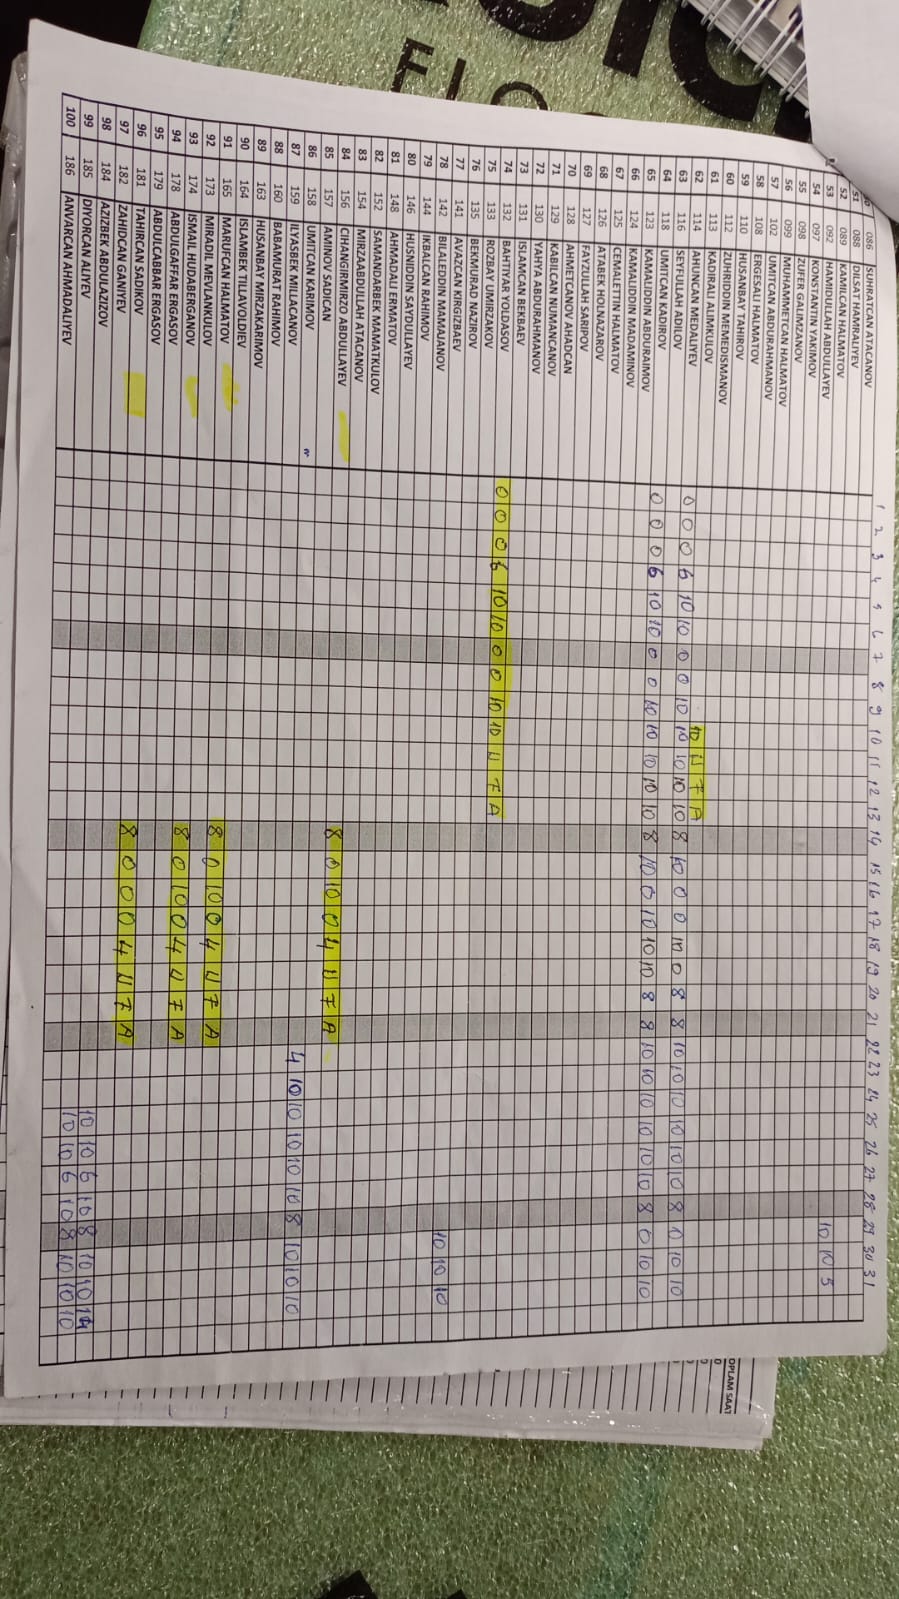 1 2 3 4 5 6 7 8 9 10 11 12 13 14 15 16 17 18 19 20 21 22 23 24 25 26 27 28 29 30 31
086 SUHRATCAN ATACANOV
51 088 DILSAT HAMRALIYEV
52 089 KAMILCAN HALMATOV
53 092 HAMIDULLAH ABDULLAYEV 10 10 5
54 097 KONSTANTIN YAKIMOV
55 098 ZUFER GALIMZANOV
56 099 MUHAMMETCAN HALMATOV
57 102 UMITCAN ABDURAHMANOV
58 108 ERGESALI HALMATOV
59 110 HUSANBAY TAHIROV
60 112 ZUHRIDDIN MEMEDISMANOV
61 113 KADIRALI ALIMKULOV
62 114 AHUNCAN MEDALIYEV 10 U F A
63 116 SEYFULLAH ADILOV 0 0 0 6 10 10 0 0 10 10 10 10 10 8 10 0 0 10 0 8 8 10 10 10 10 10 10 8 0 10 10
64 118 UMITCAN KADIROV
65 123 KAMALIDDIN ABDURAIMOV 0 0 0 6 10 10 0 0 10 10 10 10 10 8 10 0 10 10 10 8 8 10 10 10 10 10 10 8 0 10 10
66 124 KAMALIDDIN MADAMINOV
67 125 CEMALETTIN HALMATOV
68 126 ATABEK HOLNAZAROV
69 127 FAYZULLAH SARIPOV
70 128 AHMETCANOV AHADCAN
71 129 KABILCAN NUMANCANOV
72 130 YAHYA ABDURAHMANOV
73 131 ISLAMCAN BEKBAEV
74 132 BAHTIYAR YOLDASOV
75 133 ROZBAY UMIRZAKOV 0 0 0 6 10 10 0 0 10 10 U F A
76 135 BEKMURAD NAZIROV
77 141 AVAZCAN KIRGIZBAEV
78 142 BILALEDDIN MAMAJANOV 10 10 10
79 144 IKBALCAN RAHIMOV
80 146 HUSNIDDIN SAYDULLAYEV
81 148 AHMADALI ERMATOV
82 152 SAMANDARBEK MAMATKULOV
83 154 MIRZAABDULLAH ATACANOV
84 156 CIHANGIRMIRZO ABDULLAYEV
85 157 AMINOV SADICAN 8 0 10 0 4 U F A
86 158 UMITCAN KARIMOV
87 159 ILYASBEK MILLACANOV 4 10 10 10 10 10 8 10 10 10
88 160 BABAMURAT RAHIMOV
89 163 HUSANBAY MIRZAKARIMOV
90 164 ISLAMBEK TILLAVOLDIEV
91 165 MARUFCAN HALMATOV
92 173 MIRADIL MEVLANKULOV 8 0 10 0 4 U F A
93 174 ISMAIL HUDABERGANOV
94 178 ABDULGAFFAR ERGASOV 8 0 10 0 4 U F A
95 179 ABDULCABBAR ERGASOV
96 181 TAHIRCAN SADIKOV
97 182 ZAHIDCAN GANIYEV 8 0 0 0 4 U F A
98 184 AZIZBEK ABDULAZIZOV
99 185 DIYORCAN ALIYEV 10 10 6 10 8 10 10 14
100 186 ANVARCAN AHMADALIYEV 10 10 6 10 8 10 10 10
OPLAM SAAT